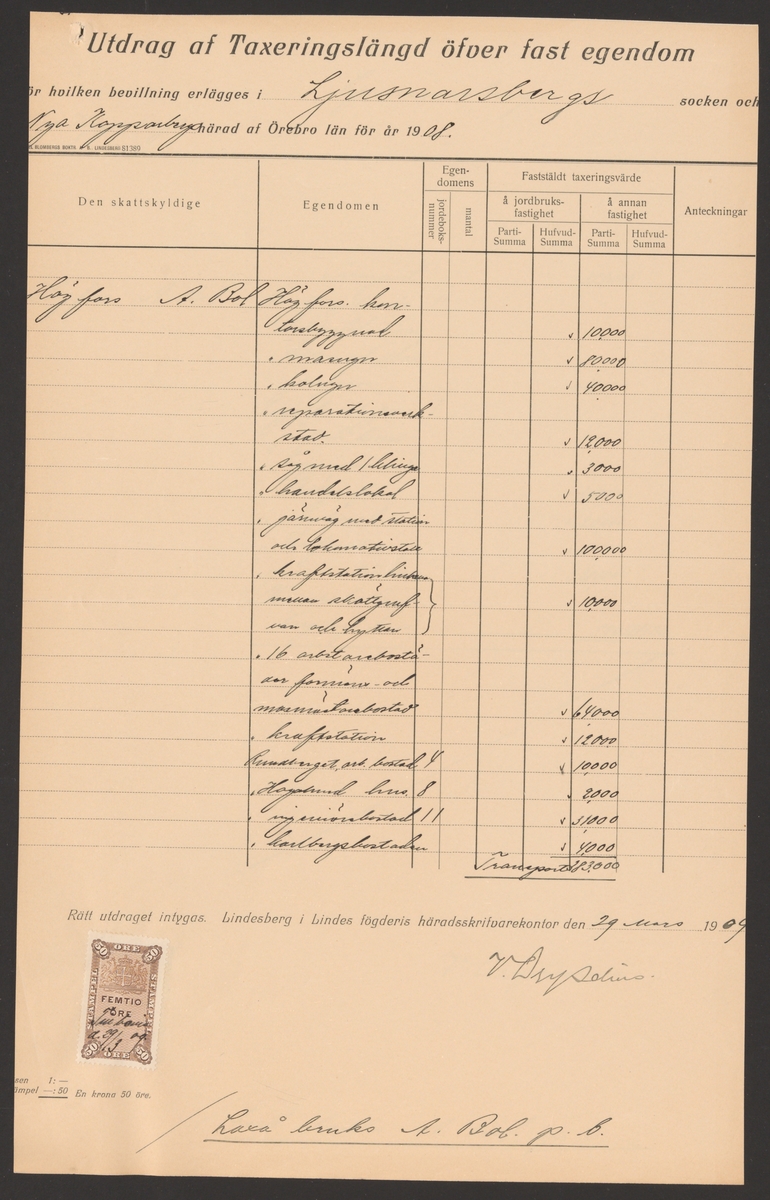 Utdrag af Taxeringslängd öfver fast egendom
ör hvilken bevillning erlägges i Ljusnarsbergs socken och
Nya Kopparbergs härad af Örebro län för år 1908.
LINDESBERG 81389
Den skattskyldige
Egendomen
Egen-
domens
jordeboks-
nummer
mantal
Faststäldt taxeringsvärde
å jordbruks-
fastighet
å annan
fastighet
Parti-
Summa
Hufvud-
Summa
Parti-
Summa
Hufvud-
Summa
Anteckningar
Högfors A. Bol Högfors. kon-
torsbyggnad 10,000
" masugn 80,000
" kolugn 40,000
" reparationsverk-
stad. 12,000
" såg med 1 klinga 3000
" handelslokal 5000
" järnväg med station
och lokomotivstall 100,000
" kraftstation
mellan
van och hyttan 10,000
" 16 arbetarebostä-
der förmans- och
masmästarebostad 64,000
" kraftstation 12000
arb. bostad 4 10,000
" hus. 8 2,000
" ingeniörsbostad 11 31,000
" Karlbergsbostaden 4,000
Transport 383,000
Rätt utdraget intygas. Lindesberg i Lindes fögderis häradsskrifvarekontor den 29 Mars 1909
STÄMPEL
50 ÖRE 50
FEMTIO
ÖRE
d. 29/3 09.
50 ÖRE 50
sen 1:—
ämpel —:50 En krona 50 öre.
Laxå bruks A. Bol. p. b.